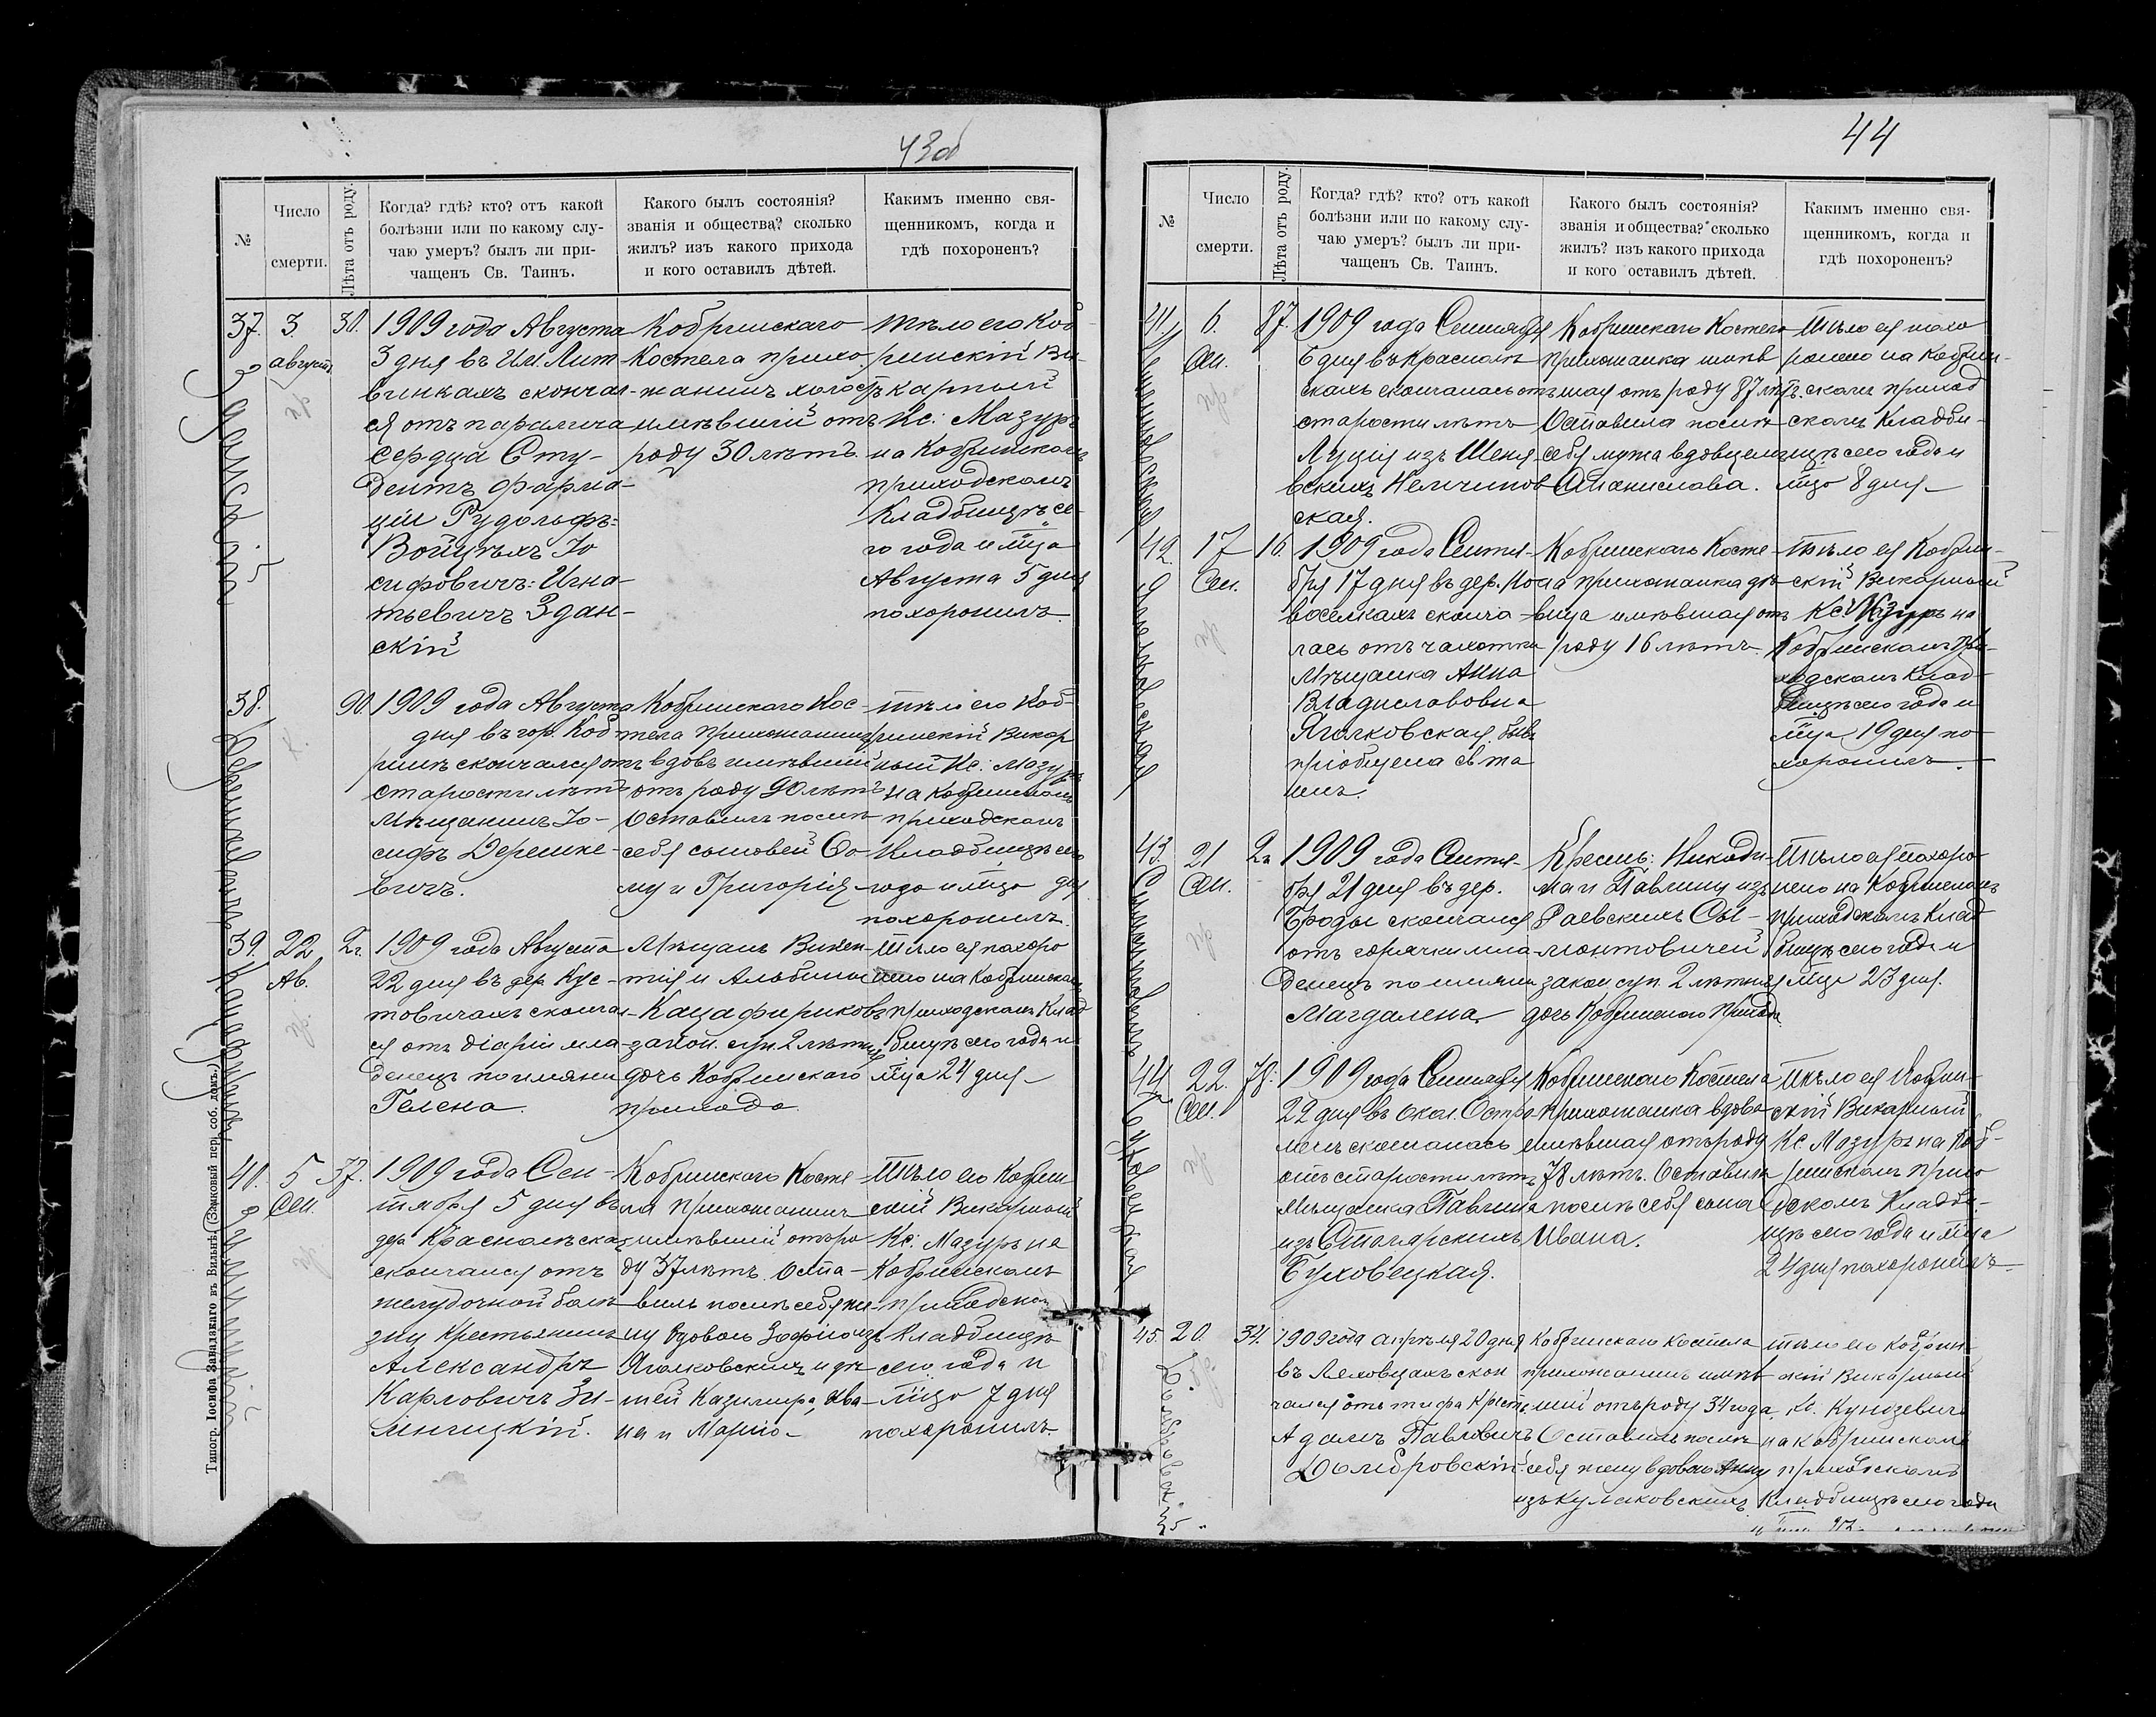 43об
№
Число смерти.
Лѣта отъ роду.
Когда? гдѣ? кто? отъ какой
болѣзни или по какому слу-
чаю умеръ? былъ ли при-
чащенъ Св. Таинъ.
Какого былъ состоянія?
званія и общества? сколько
жилъ? изъ какого прихода
и кого оставилъ дѣтей.
Какимъ именно свя-
щенникомъ, когда и
гдѣ похороненъ?
37.
Зданскій
3
августа
30.
1909 года Августа
3 дня въ Им. Лит-
винкахъ скончал-
ся отъ паралича
сердца Сту-
дентъ фарма-
ціи Рудольфъ=
Войцѣхъ Іо
сифовичъ-Игна-
тьевичъ Здан-
скій
Кобринскаго
Костела прихо
жанинъ холостъ
имѣвшій отъ
роду 30 лѣтъ.
Тѣло его Коб-
ринскій Ви-
карный
Кс: Мазуръ
на Кобринскомъ
приходскомъ
Кладбищѣ се-
го года и мца
Августа 5 дня
похоронилъ.
38.
90.
1909 года Августа
дня въ гор. Коб
ринѣ скончался отъ
старости лѣтъ
Мѣщанинъ Іо-
сифъ Дерешке-
вичъ.
Кобринскаго Кос-
тела прихожанинъ
вдовъ имѣвшій
отъ роду 90 лѣтъ
Оставилъ послѣ
себя сыновей Ѳо-
му и Григорія
тѣло его Коб-
ринскій Викар
ный Кс: Мазуръ
на Кобринскомъ
приходскомъ
Кладбищѣ сего
года и мца дня
похоронилъ.
39.
22
Ав.
2г.
1909 года Августа
22 дня въ дер. Кус-
товичахъ сконча-
ся отъ діаріи мла-
денецъ по имяни
Гелена.
Мѣщанъ Викен-
тія и Альбины
Кацафириковъ
закон. суп. 2 лѣтняя
дочь Кобринскаго
прихода
Тѣло ея похоро
нено на Кобринскомъ
приходскомъ Клад
бищѣ сего года и
мца 24 дня
40.
5
Сен.
37.
1909 года Сен-
тября 5 дня въ
дер Красномъ скахъ
скончался отъ
желудочной болѣ-
зни Крестьянинъ
Александръ
Карловичъ Зи-
линицкій.
Кобринскаго Косте
ла прихожанинъ
имѣвшій отъ ро
ду 37 лѣтъ. Оста-
вилъ послѣ себя же-
ну вдовою Зофію изъ
Яголковскихъ и дѣ
тей Казимира, Ива-
на и Марію
Тѣло его Кобрин
скій Викарный
Кс: Мазуръ на
Кобринскомъ
приходском
Кладбищѣ
сего года и
мца 7 дня
похоронилъ
Типогр. Іосифа Завадзкаго въ Вильнѣ (Замковый пер. соб. домъ.)
44
№
Число смерти.
Лѣта отъ роду.
Когда? гдѣ? кто? отъ какой
болѣзни или по какому слу-
чаю умеръ? былъ ли при-
чащенъ Св. Таинъ.
Какого былъ состоянія?
званія и общества? сколько
жилъ? изъ какого прихода
и кого оставилъ дѣтей.
Какимъ именно свя-
щенникомъ, когда и
гдѣ похороненъ?
41.
6.
Сен.
87.
1909 года Сентября
6 дня въ Красномъ
скахъ скончалась отъ
старости лѣтъ
Луція изъ Шеня-
вскихъ Немчинов
ская.
Кобринскаго Костела
прихожанка имѣв
шая отъ роду 87 лѣтъ.
Оставила послѣ
себя мужа вдовцемъ
Станислава.
Тѣло ея похо
ронено на Кобрин-
скомъ приход
скомъ Кладби-
щѣ сего года и
мца 8 дня
42.
17
Сен.
16.
1909 года Сентя-
бря 17 дня въ дер. Но
воселкахъ сконча-
лась отъ чахотки
Мѣщанка Анна
Владиславовна
Яголковская. бывъ
пріобщена св та
инъ.
Кобринскаго Косте
ла прихожанка дѣ
вица имѣвшая отъ
роду 16 лѣтъ
Тѣло ея Кобрин-
скій Викарный
Кс: Мазуръ на
Кобринскомъ при-
ходскомъ Клад-
бищѣ сего года и
мца 19 дня по-
хоронилъ.
43.
21
Сен.
2г
1909 года Сентя-
бря 21 дня въ дер.
Броды скончался
отъ горячки мла-
денецъ по имяни
Магдалена.
Крестъ: Никоди-
ма и Павлины изъ
Раевскихъ Сы-
монтовичей
закон суп. 2 лѣтняя
дочь Кобринскаго Прихода.
Тѣло ея похоро
нено на Кобринскомъ
приходскомъ Клад
бищѣ сего года и
мца 23 дня.
44.
Буховецкая
22.
Сен.
78.
1909 года Сентября
22 дня въ окол. Остро
мечъ скончалась
отъ старости лѣтъ
Мѣщанка Павлина
изъ Столярскихъ
Буховецкая.
Кобринскаго Костела
прихожанка вдова
имѣвшая отъ роду
78 лѣтъ. Оставила
послѣ себя сына
Ивана.
Тѣло ея Кобрин-
скій Викарный
Кс. Мазуръ на Коб-
ринскомъ прихо
дскомъ Кладби-
щѣ сего года и мца
24 дня похоронилъ
45.
Домбровскій
20.
34.
1909 года апрѣля 20 дня
въ Леховцахъ скон
чался отъ тифа Крест.
Адамъ Павловичъ
Домбровскій.
Кобринскаго Костела
прихожанинъ имѣв
шій отъ роду 34 года.
Оставилъ послѣ
себя жену вдовою Анну
изъ Кулаковскихъ
тѣло его Кобрин-
скій Викарный
Кс. Кунцевичъ
на Кобринскомъ
приходскомъ
Кладбищѣ сего года